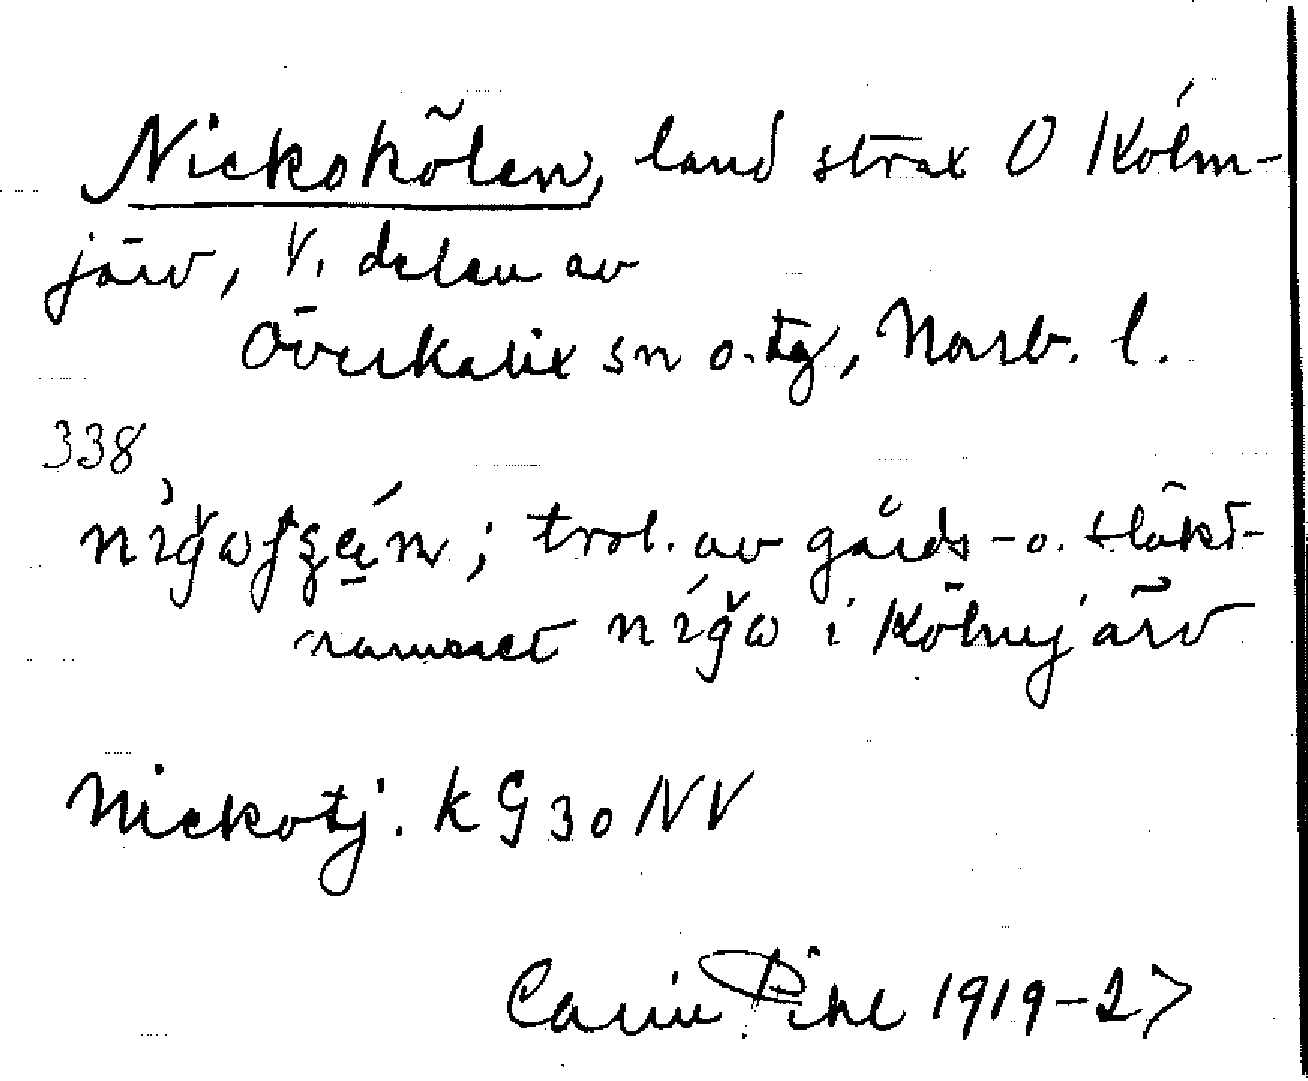 Nickokölen, land strax O Kölm-
järv, V. delen av
Överkalix sn o. tg, Norrb. l.
338
; trol. av gårds- o. släkt-
namnet i Kölmjärv
Nickotj. k G 30 NV
Carin Pihl 1919-27